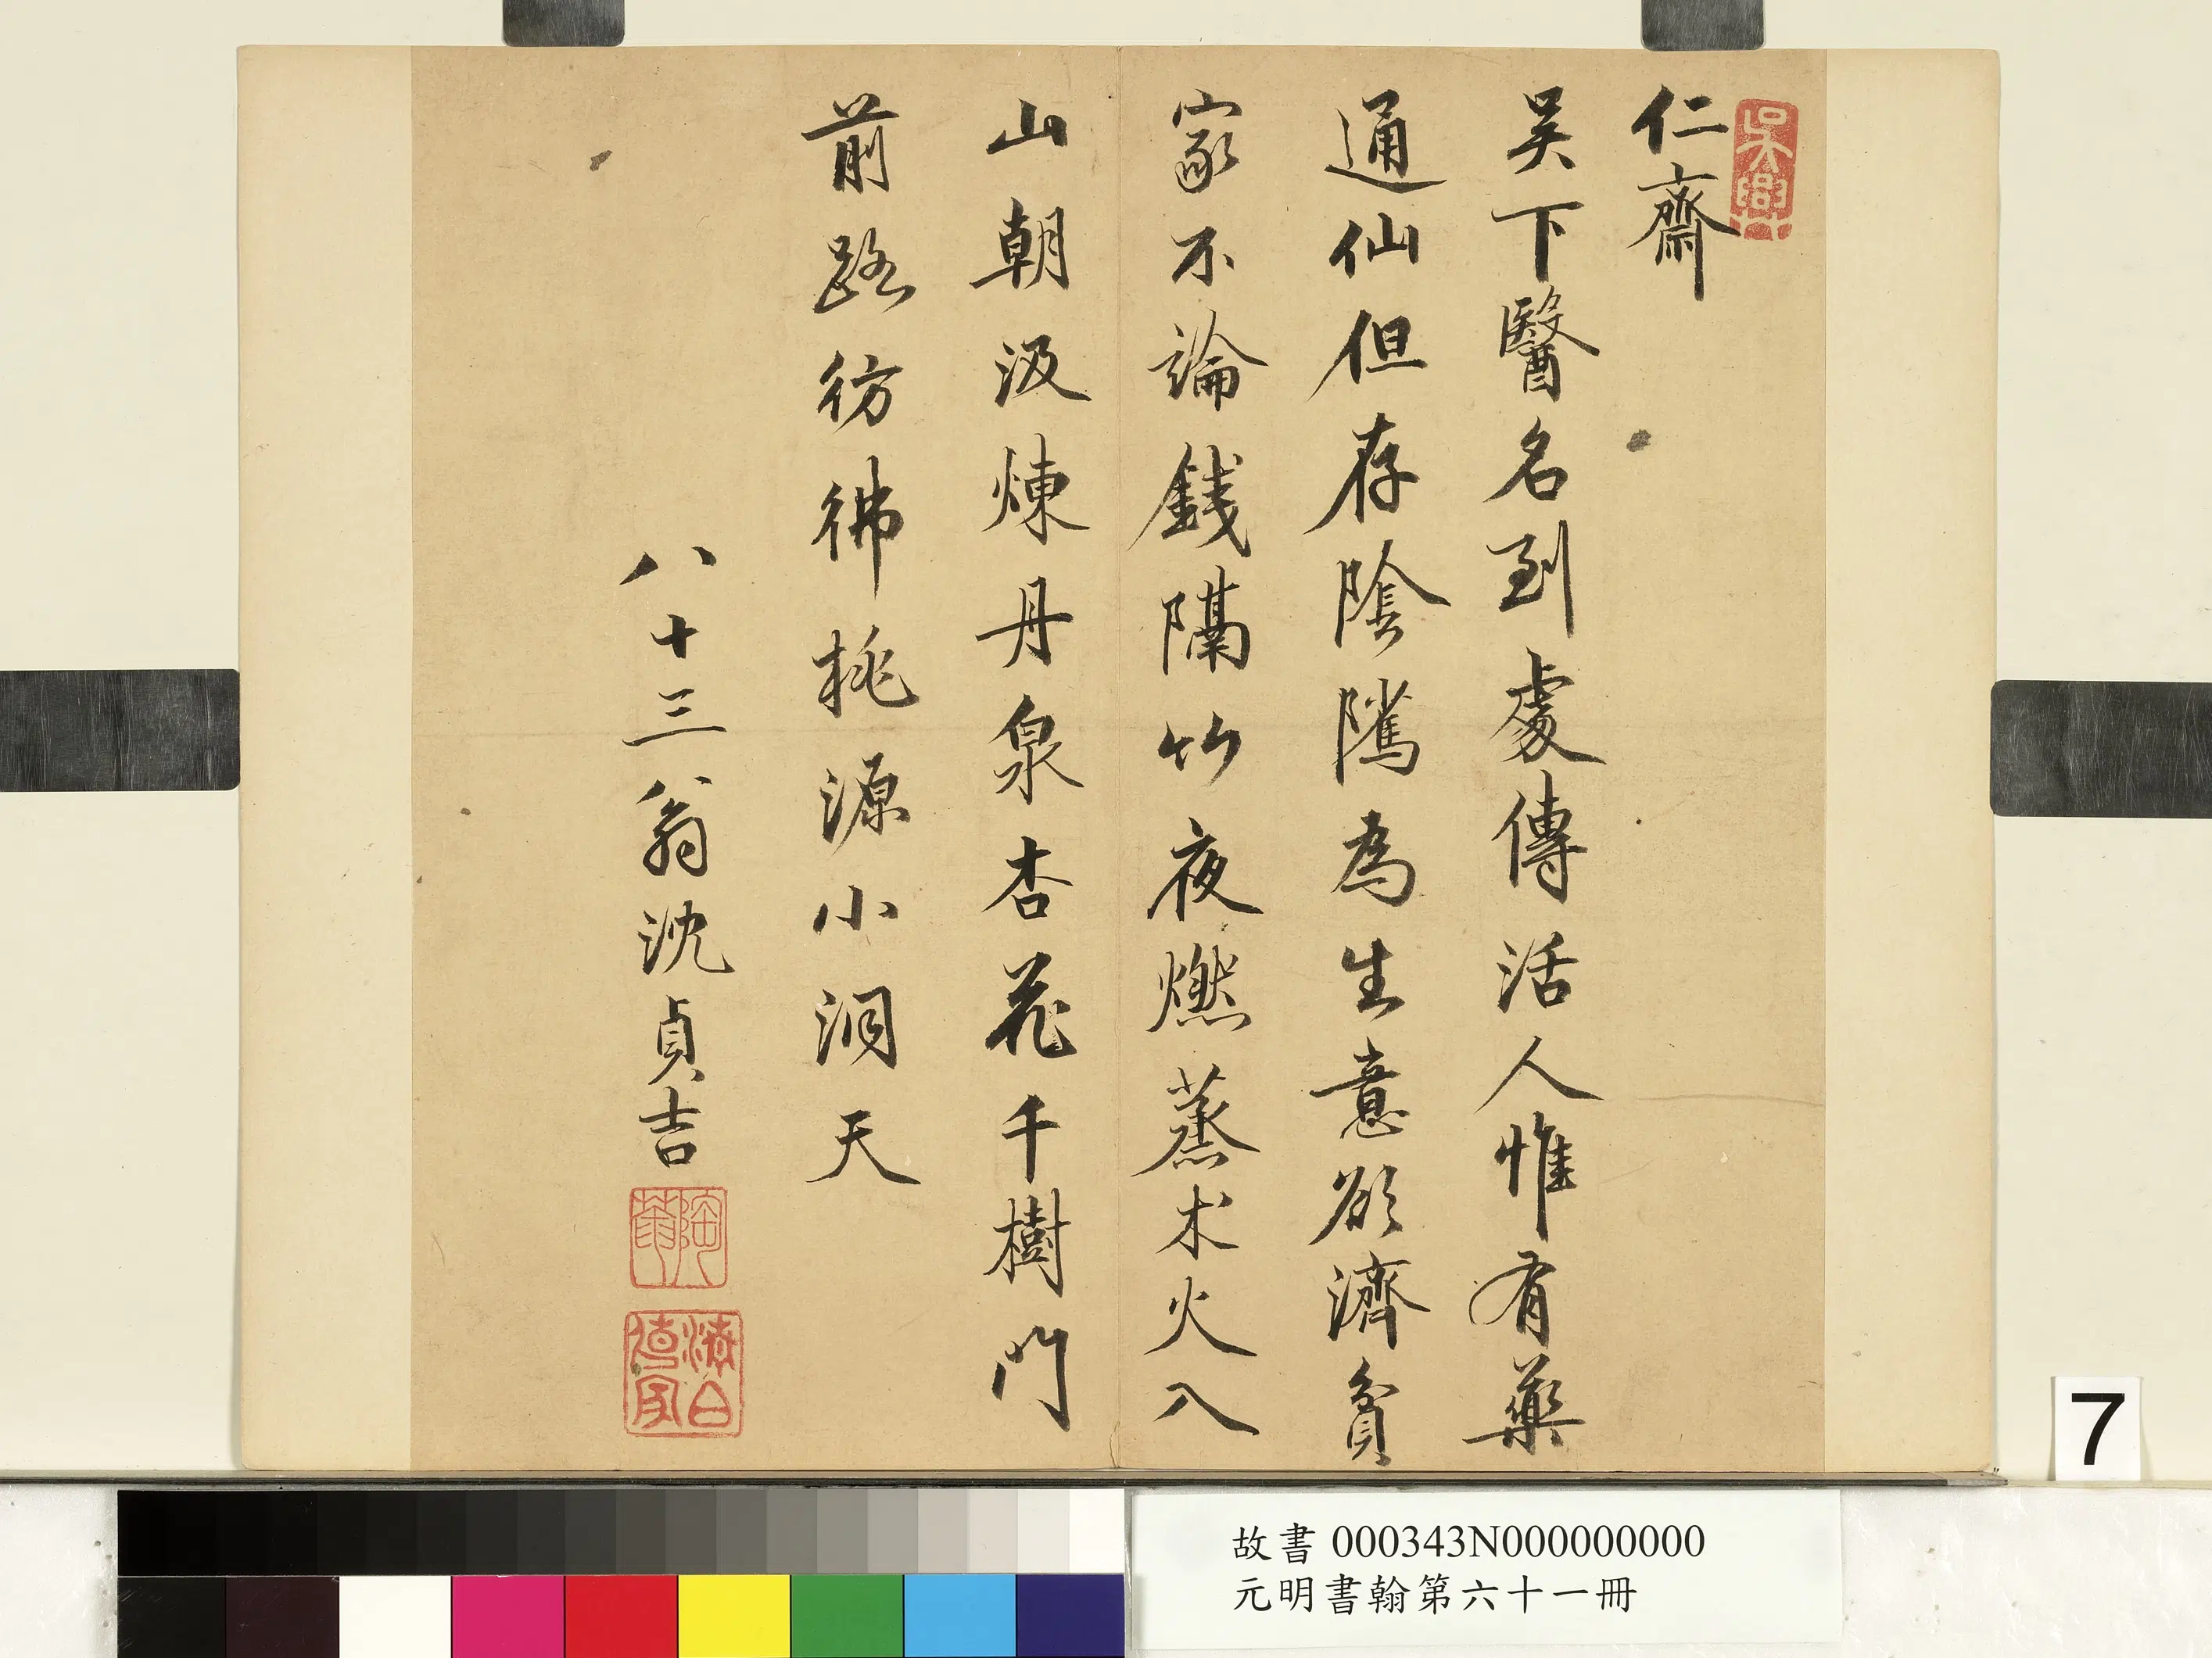 仁齋
吳下醫名到處傳活人惟有藥
通仙但存陰隲為生意欲濟貧
家不論錢隔竹夜燃蒸术火入
山朝汲煉丹泉杏花千樹門
前路彷彿桃源小洞天
八十三翁沈貞吉
陶
濟白
7
故書 000343N000000000
元明書翰第六十一冊